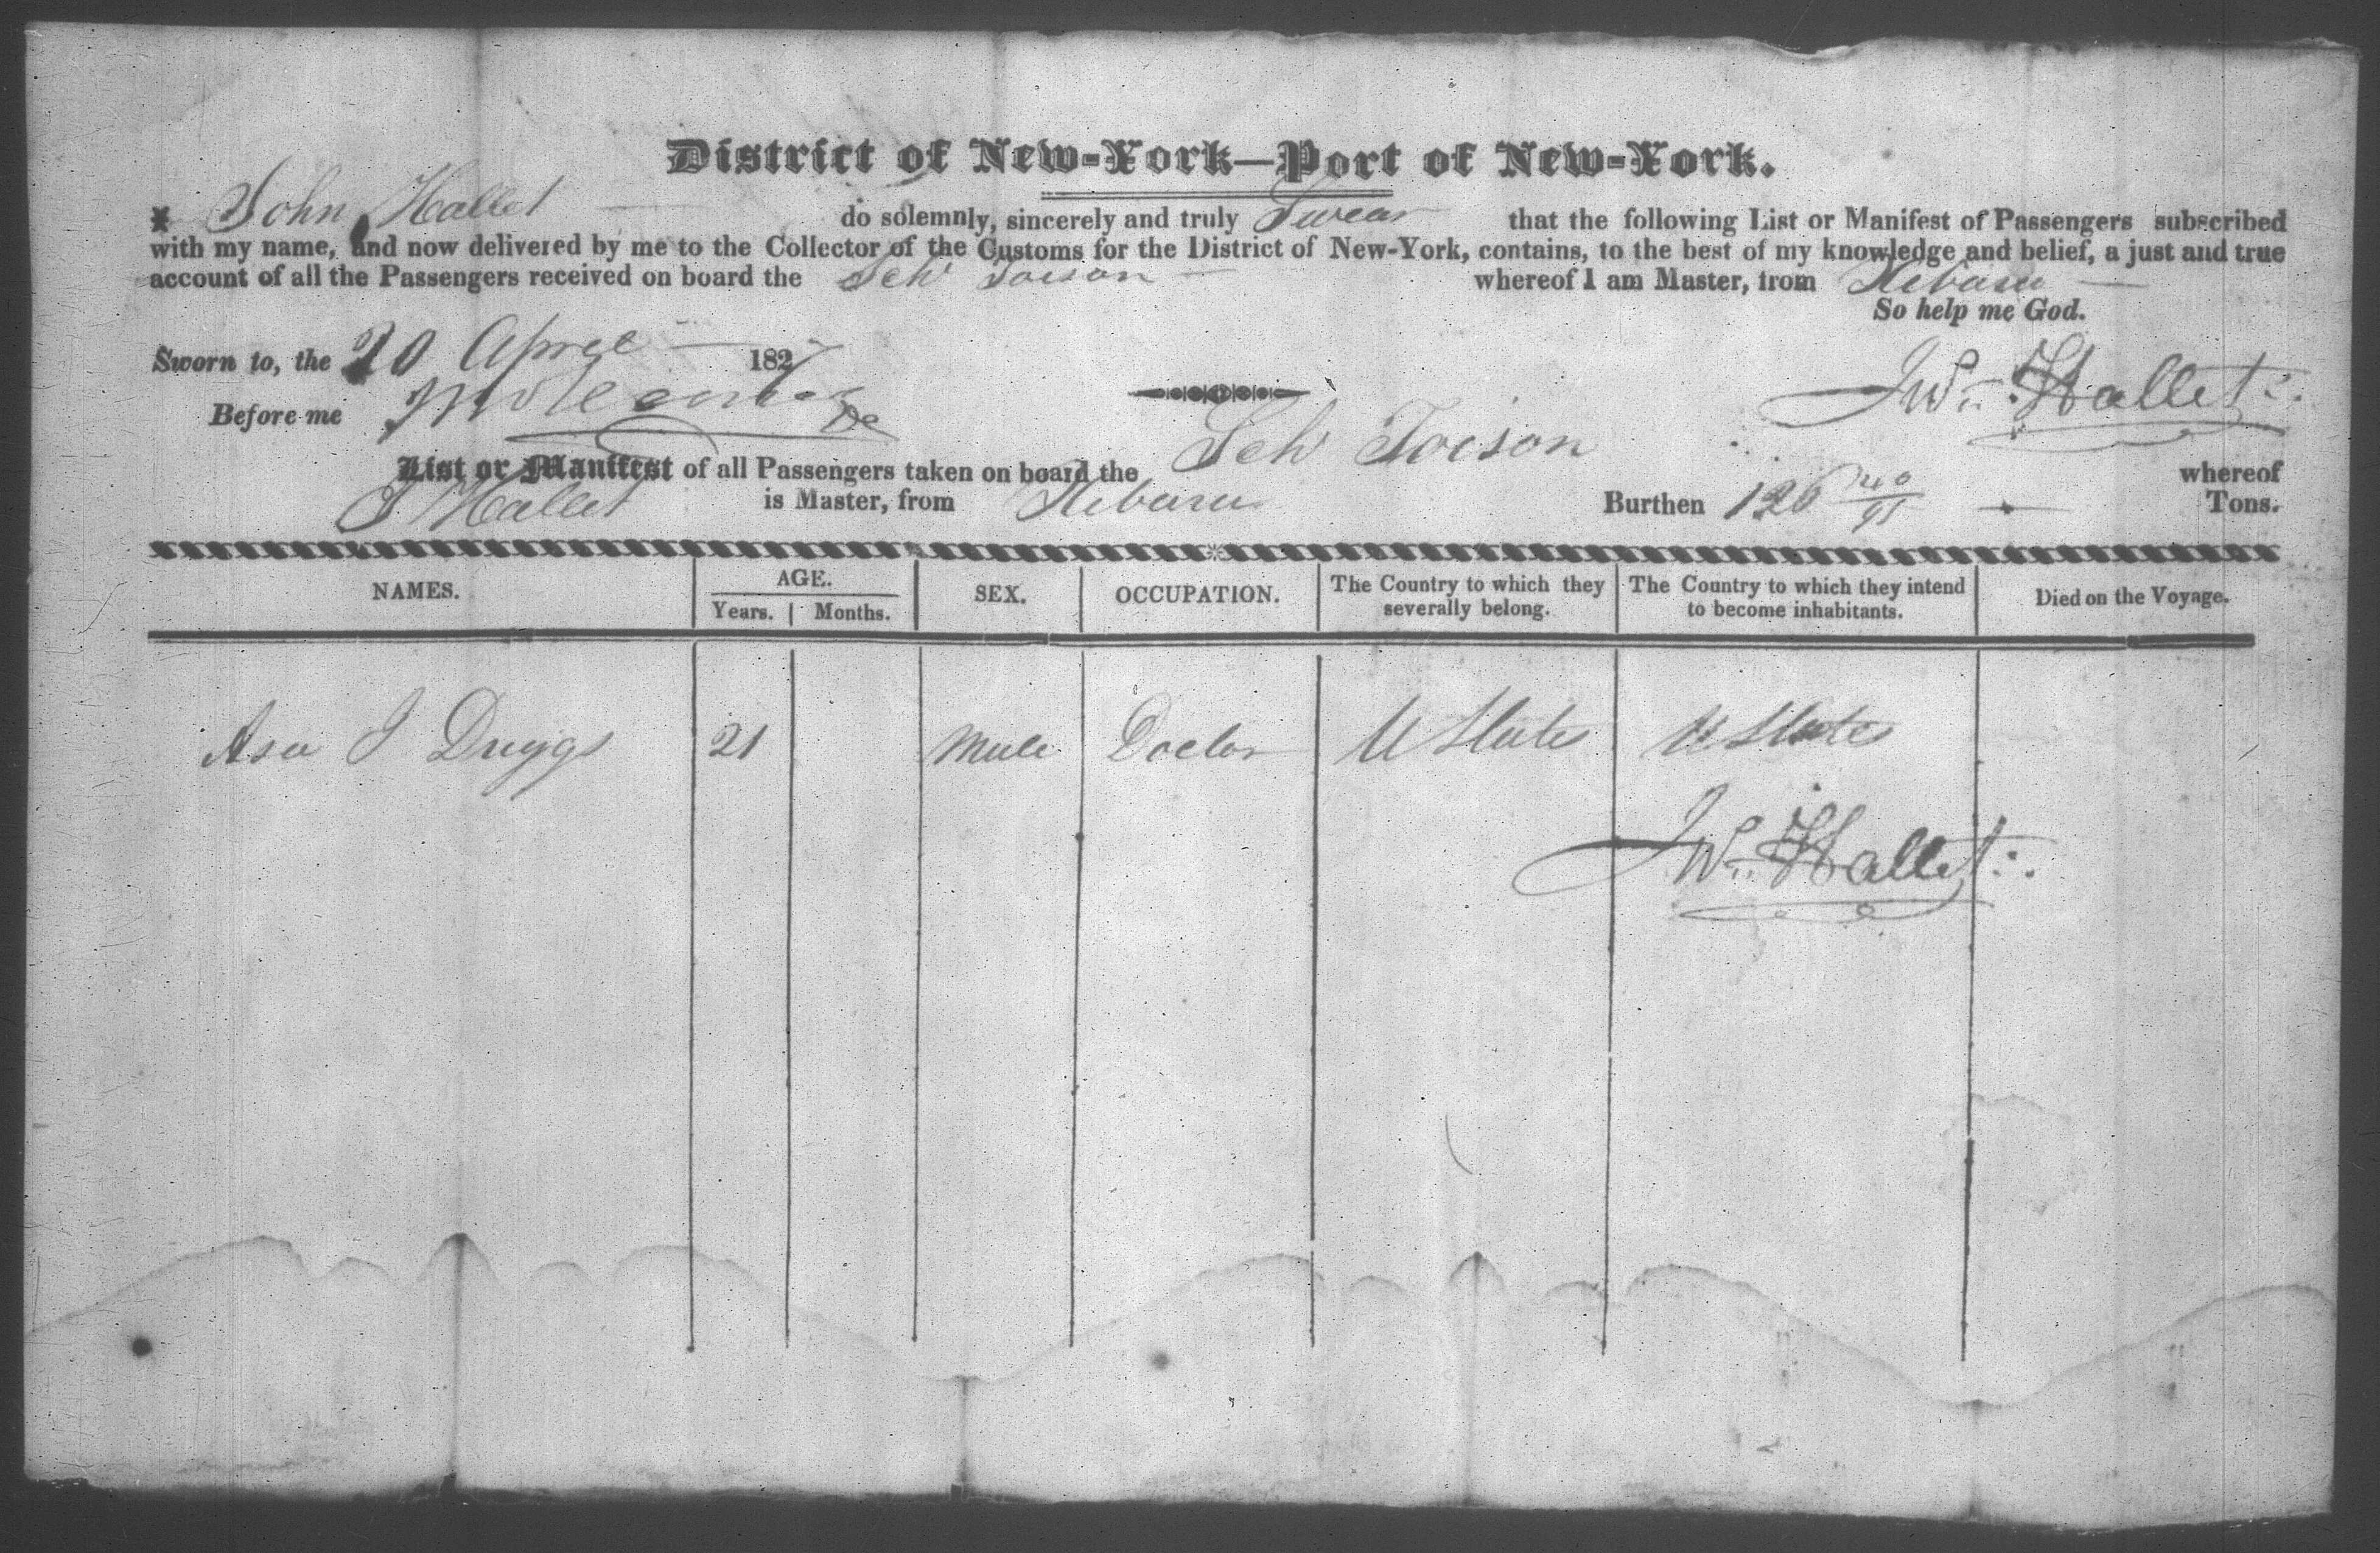 District of New-York—Port of New-York.
I John Hallet do solemnly, sincerely and truly Swear that the following List or Manifest of Passengers subscribed
with my name, and now delivered by me to the Collector of the Customs for the District of New-York, contains, to the best of my knowledge and belief, a just and true
account of all the Passengers received on board the Schr Toison whereof I am Master, from
So help me God.
Sworn to, the 20 April 1827
Before me
Jno. Hallet
List or Manifest of all Passengers taken on board the Schr Toison whereof
J Hallet is Master, from Burthen 126 40/95 Tons.
NAMES. AGE. SEX. OCCUPATION. The Country to which they severally belong. The Country to which they intend to become inhabitants. Died on the Voyage.
Years. Months.
Asa J Druggs 21 Male Doctor U States U States
Jno. Hallet